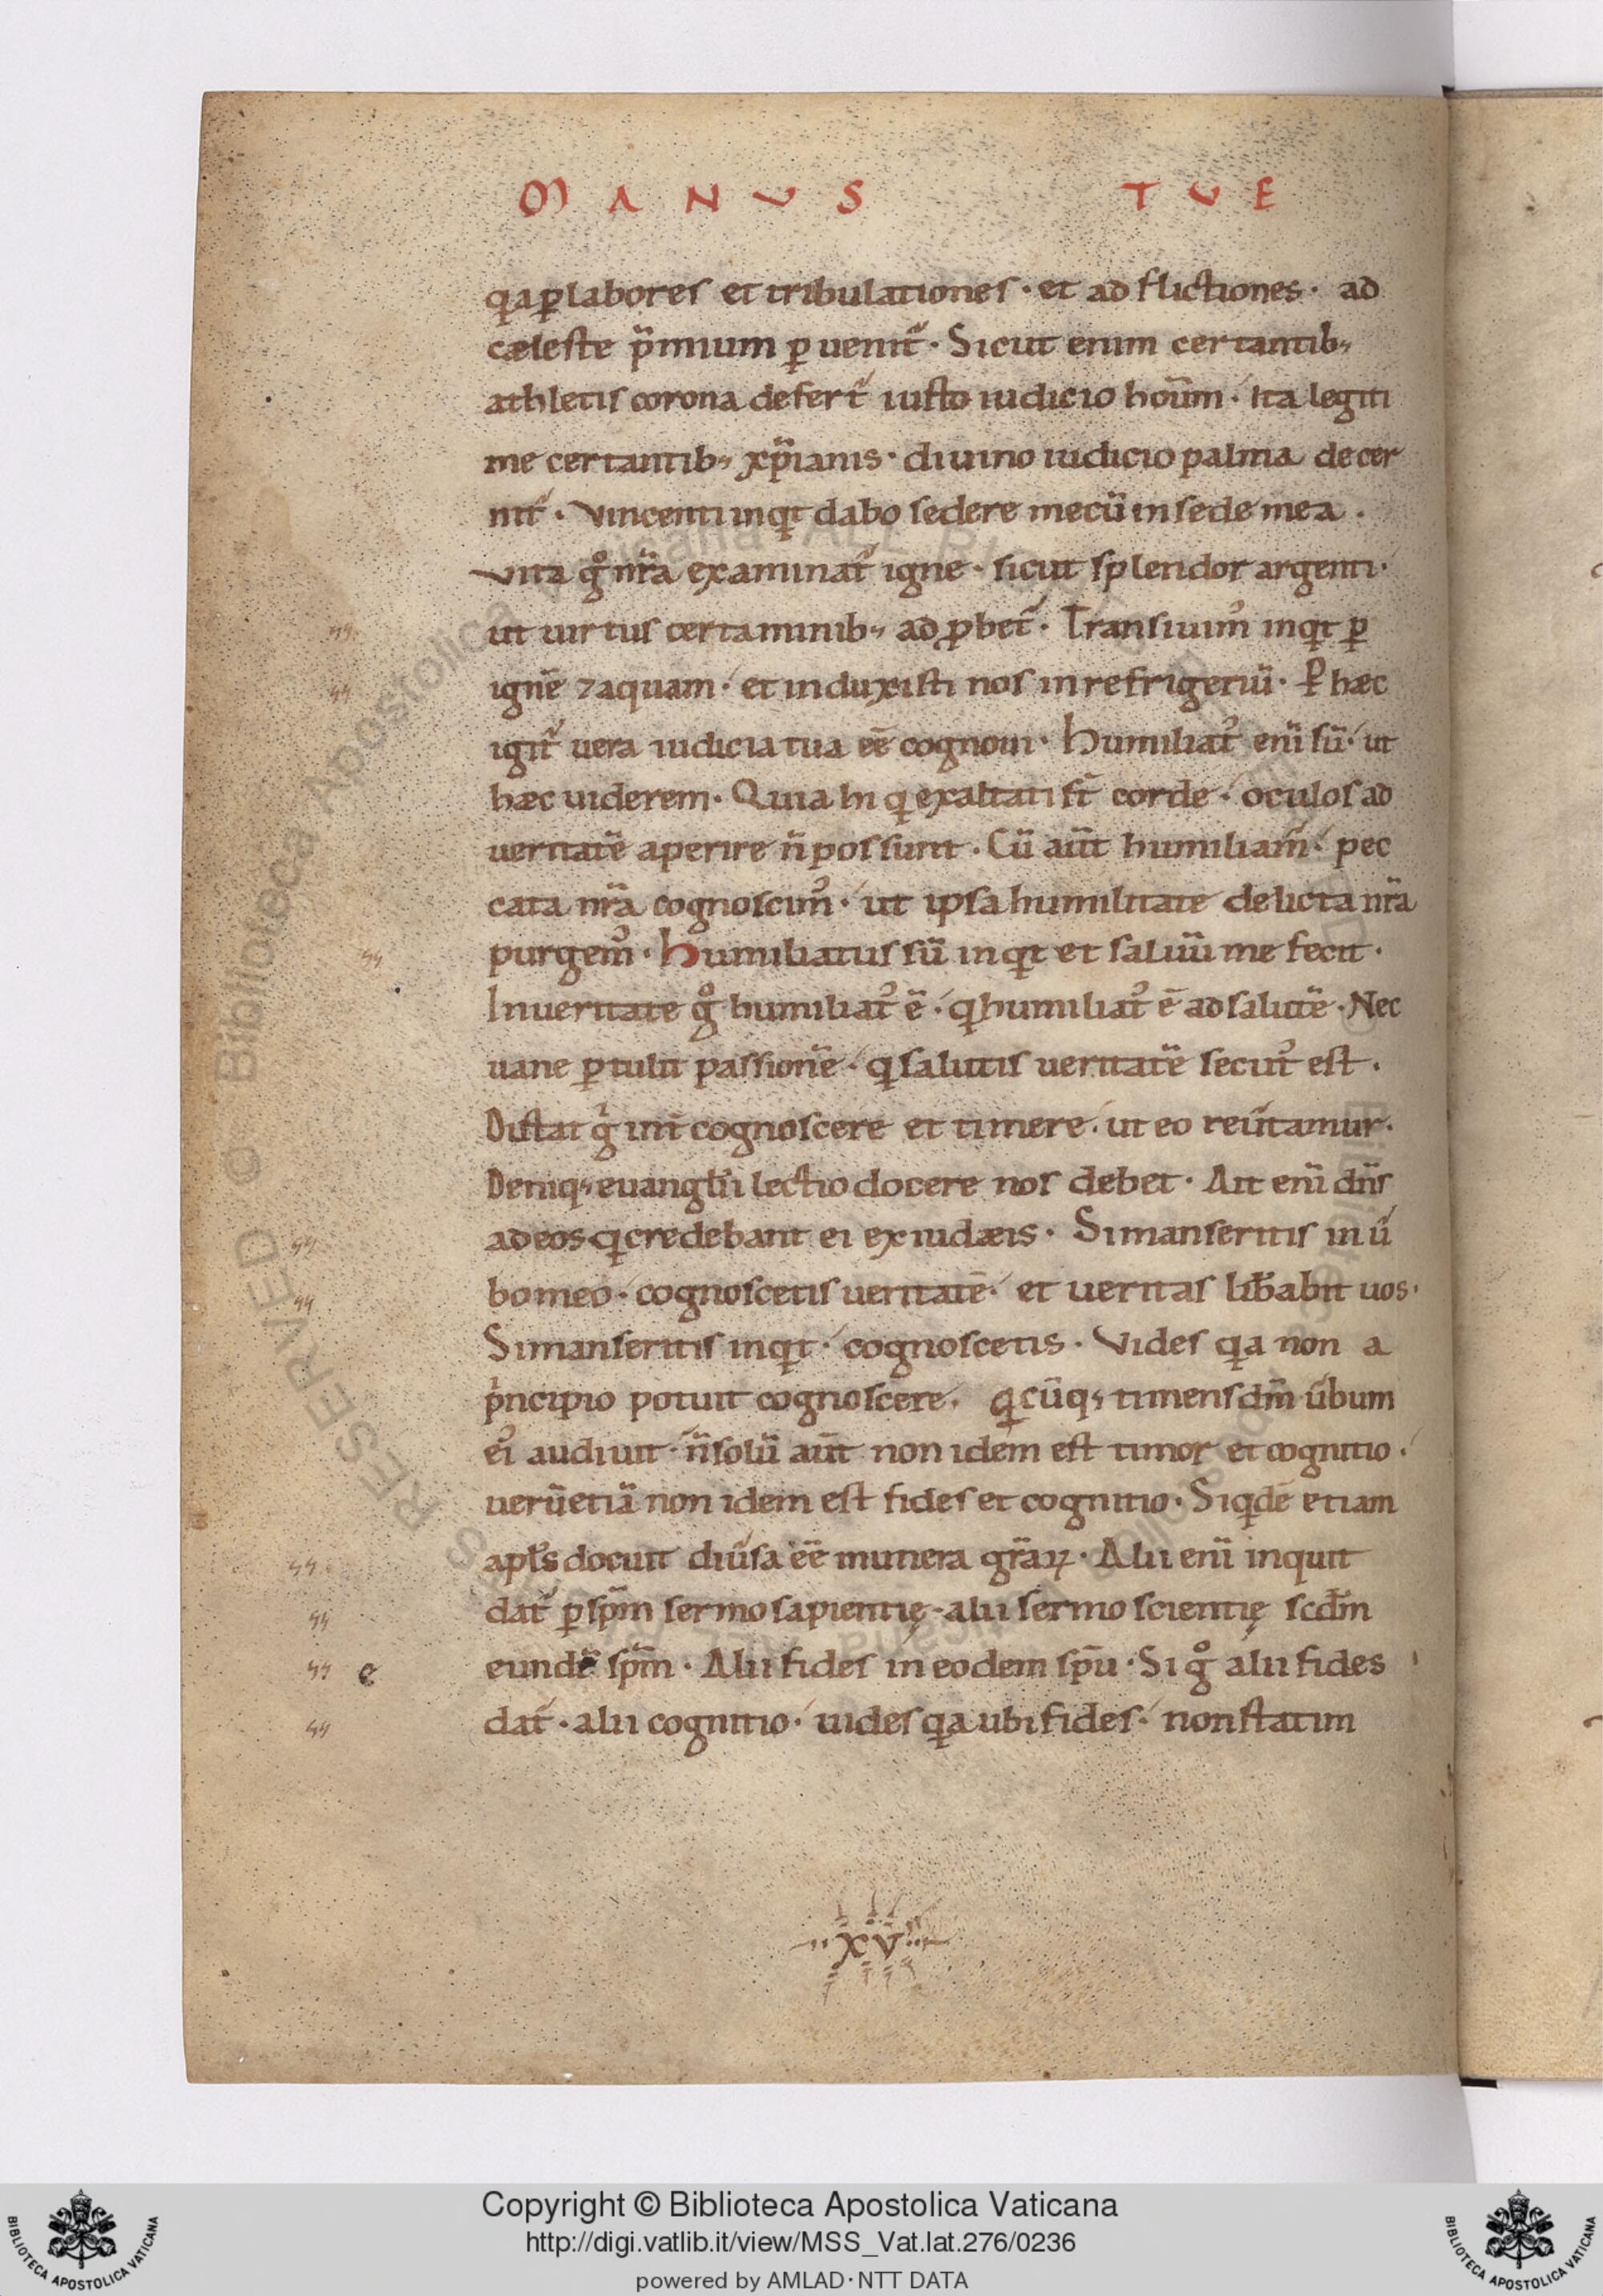 MANUS TUE
qa ꝑ labores et tribulationes · et ad flictiones · ad
cæleste p̃mium ꝑ uenit᷑ · Sicut enim certantib;
athletis corona defert᷑ iusto iudicio hoūm · ita legiti
me certantib; xp̃ianis · diuino iudicio palma decer
nit᷑ · Vincenti inqt dabo sedere mecū in sede mea ·
Vita gͦ nr̃a examinat᷑ igne · sicut splendor argenti ·
ut uirtus certaminib; adꝓbet᷑ · Transiuim᷒ inqt ꝑ
ignē ⁊ aquam · et induxisti nos in refrigeriū · Ꝑ hæc
igit᷑ uera iudicia tua eē cognoui · Humiliat᷒ eni sū · ut
hæc uiderem · Quia hi q exaltati st̄ corde · oculos ad
ueritatē aperire n̄ possunt · Cū aūt humiliam᷑ · pec
cata nr̃a cognoscim᷒ · ut ipsa humilitate delicta nr̃a
purgem᷒ · Humiliatus sū inqt et saluū me fecit ·
In ueritate gͦ humiliat᷒ ē · q humiliat᷒ ē ad salutē · Nec
uane ꝑtulit passionē · q salutis ueritatē secut᷒ est ·
Distat gⁱ int̄ cognoscere et timere · ut eo reũtamur ·
Deniq; euangl̃ii lectio docere nos debet · Ait eni dñs
ad eos q credebant ei ex iudæis · Si manseritis in ũ
bo meo · cognoscetis ueritatē · et ueritas lib̃abit uos ·
Si manseritis inqt · cognoscetis · Vides qa non a
pⁱncipio potuit cognoscere · qcūq; timens dm̄ ũbum
ei᷒ audiuit · n̄ solū aūt non idem est timor et cognitio ·
uerū etiā non idem est fides et cognitio · Siqdē etiam
apl̃s docuit diũsa eē munera gr̃aꝝ · Alii eni inquit
dat᷑ ꝑ sp̃m sermo sapientię · alii sermo scientię scd̃m
eundē sp̃m · Alii fides in eodem sp̃u · Si gͦ alii fides
dat᷑ · alii cognitio · uides qa ubi fides · non statim
e
XV
Copyright © Biblioteca Apostolica Vaticana
http://digi.vatlib.it/view/MSS_Vat.lat.276/0236
powered by AMLAD·NTT DATA
BIBLIOTECA APOSTOLICA VATICANA
BIBLIOTECA APOSTOLICA VATICANA